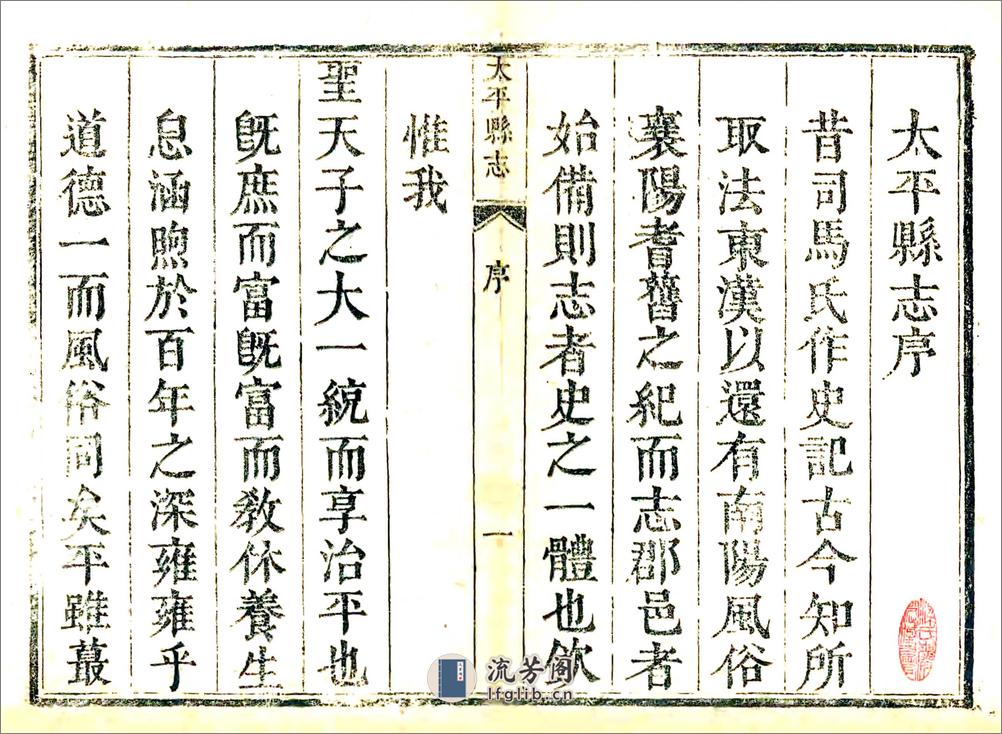 太平縣志序
昔司馬氏作史記古今知所
取法東漢以還有南陽風俗
襄陽耆舊之紀而志郡邑者
始備則志者史之一體也欽
惟我
太平縣志
序
一
聖天子之大一統而享治平也
既庶而富既富而教休養生
息涵煦於百年之深雍雍乎
道德一而風俗同矣平雖蕞
流芳阁
lfglib.cn